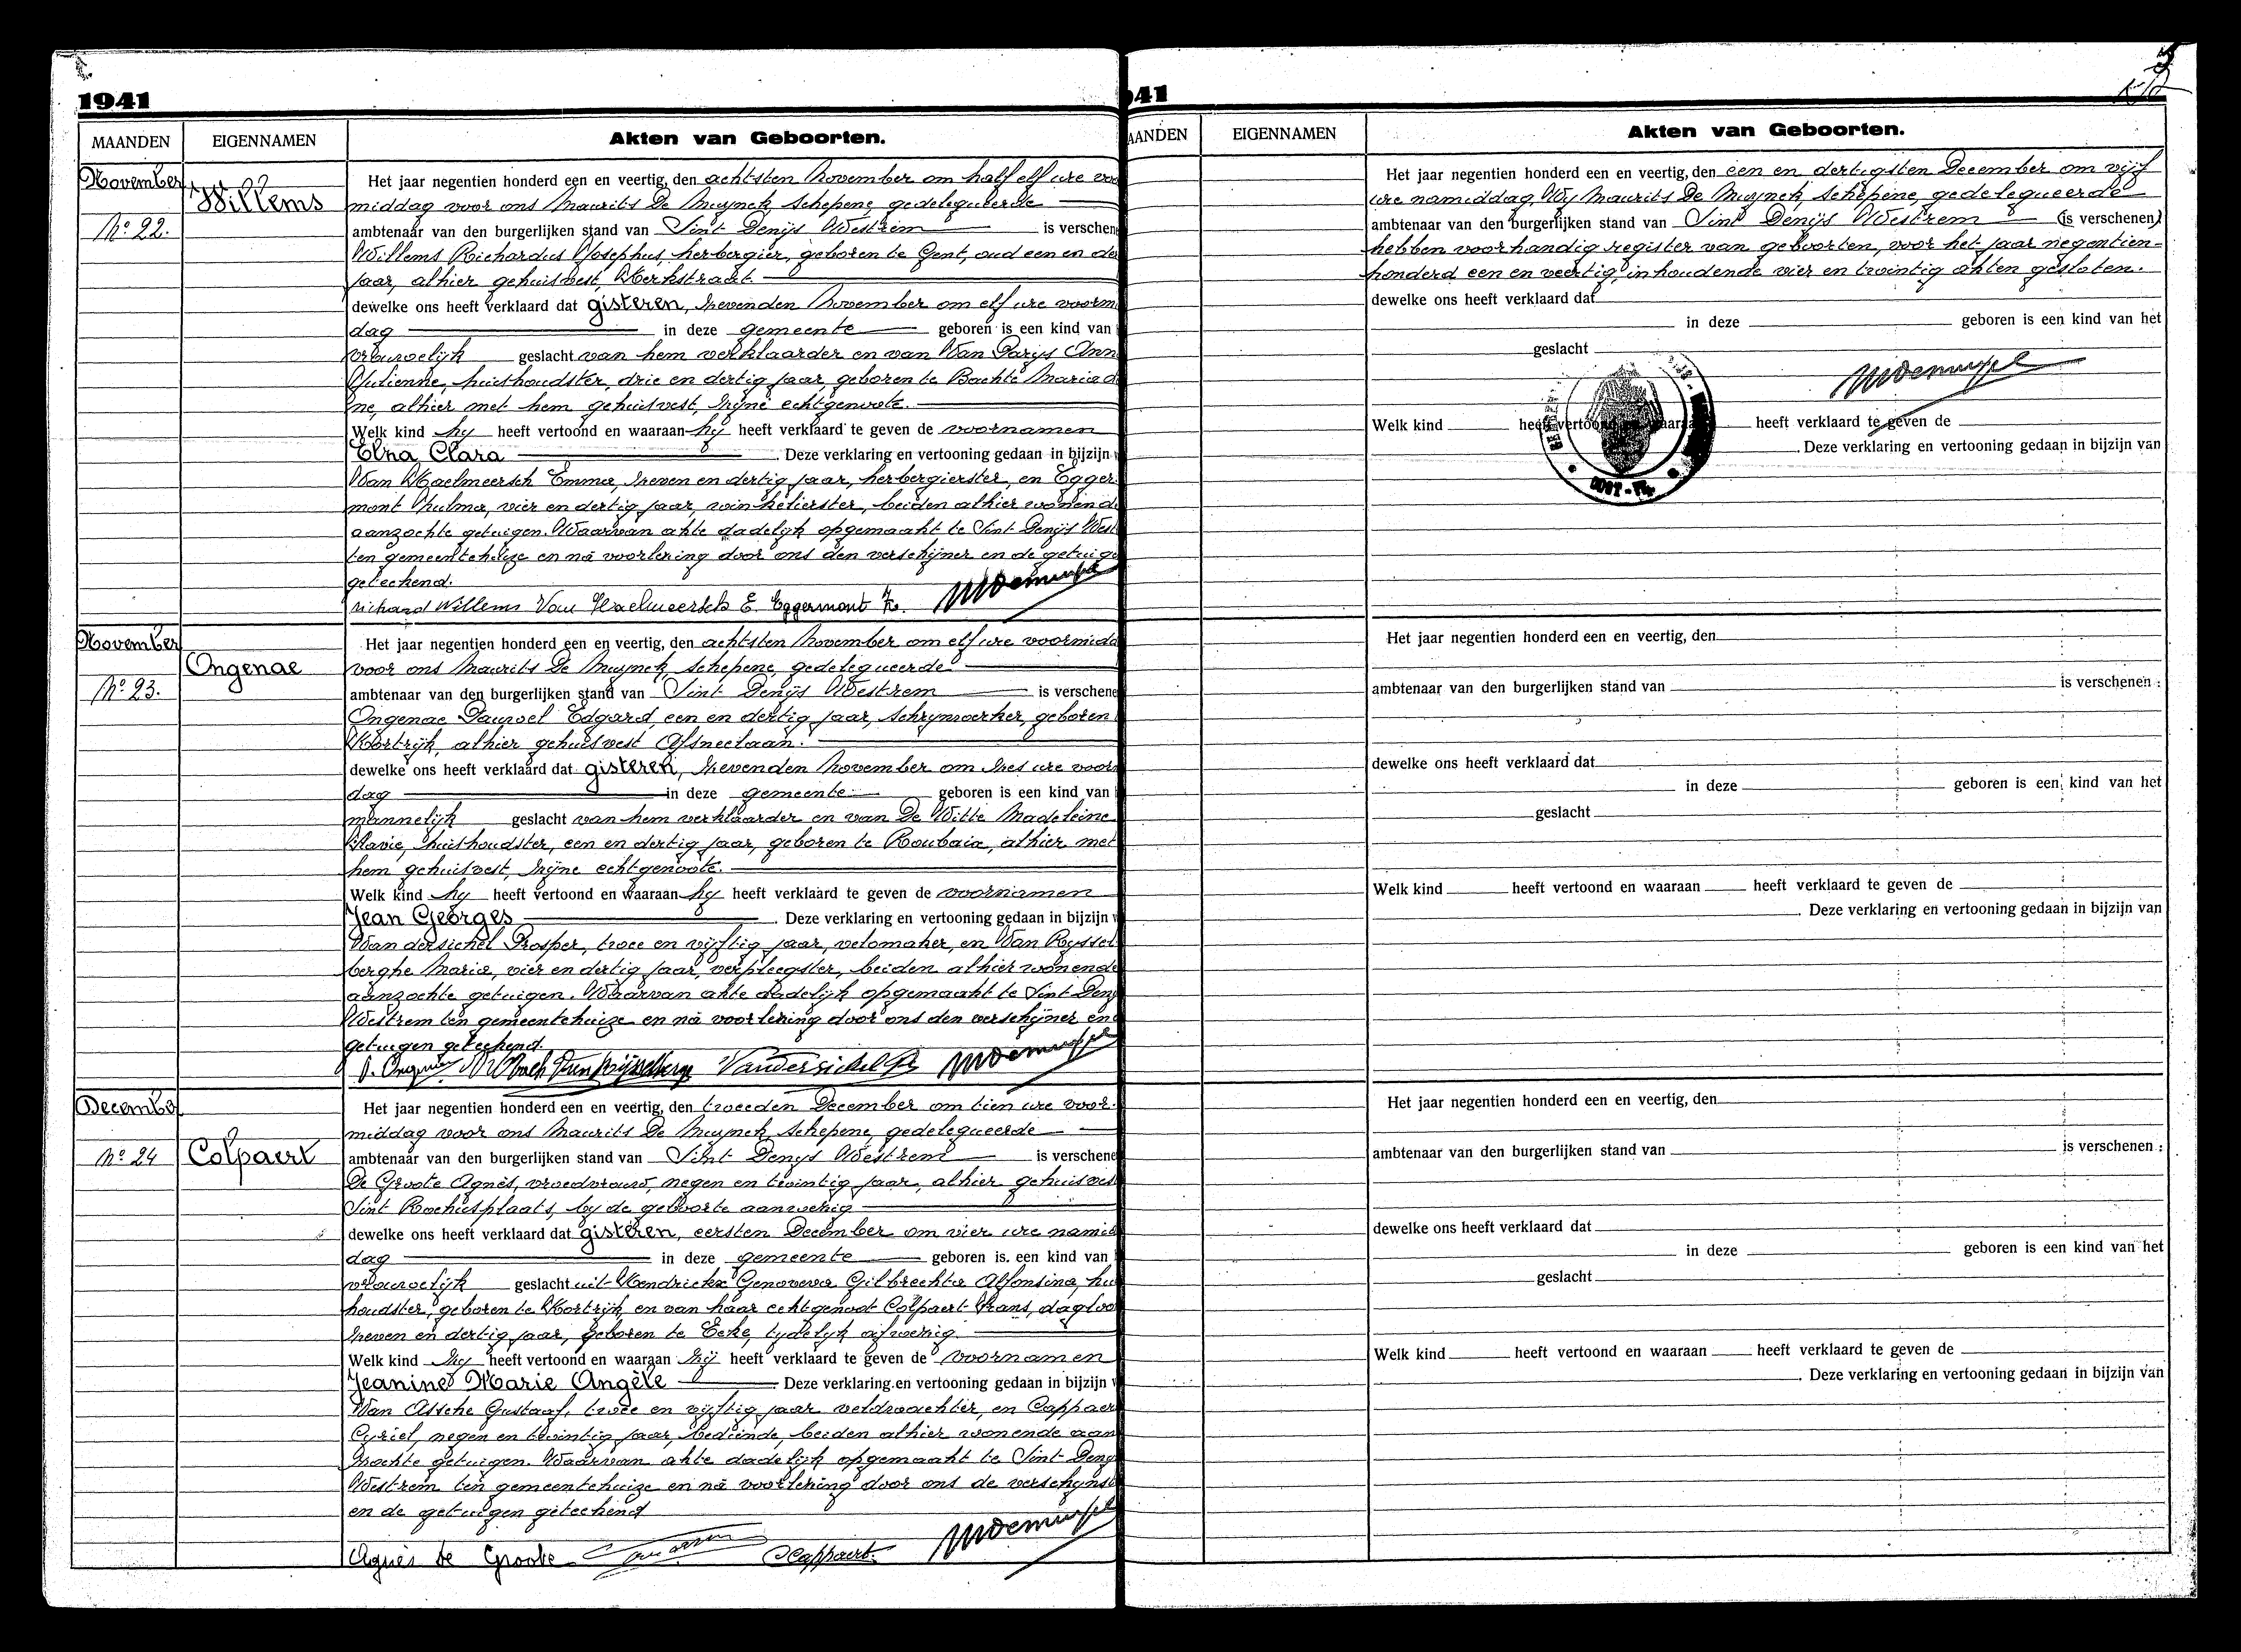 1941
MAANDEN
EIGENNAMEN
Akten van Geboorten.
November
Willems
No 22.
Het jaar negentien honderd een en veertig, den achtsten November om half elf ure voo
middag voor ons Maurits De Muynck, Schepene, gedelegueerde
ambtenaar van den burgerlijken stand van Sint Denijs Westrem is verschen
Willems Richardus Josephus, herbergier, geboren te Gent, oud een en de
jaar, alhier gehuisvest, Kerkstraat.
dewelke ons heeft verklaard dat gisteren, zevenden November om elf ure voorm
dag in deze gemeente geboren is een kind van
vrouwelijk geslacht van hem verklaarder en van Van Parys Ann
Julienne, huishoudster, drie en dertig jaar, geboren te Bachte Maria
ne, alhier met hem gehuisvest, zijne echtgenoote.
Welk kind hy heeft vertoond en waaraan hy heeft verklaard te geven de voornamen
Elza Clara Deze verklaring en vertooning gedaan in bijzijn
Van Haelmeersch Emma, zeven en dertig jaar, herbergierster, en Egger
mont Zulma, vier en dertig jaar, winkelierster, beiden alhier wonende
aanzochte getuigen. Waarvan akte dadelijk opgemaakt te Sint Denijs West
ten gemeentehuize en na voorlezing door ons den verschijner en de getuige
geteekend.
Richard Willems Van Haelmeersch E. Eggermont Z.
November
Ongenae
No 23.
Het jaar negentien honderd een en veertig, den achtsten November om elf ure voormidd
voor ons Maurits De Muynck, Schepene, gedelegueerde
ambtenaar van den burgerlijken stand van Sint Denijs Westrem is verschene
Ongenae Edgard, een en dertig jaar, schrynwerker, geboren
Kortrijk, alhier gehuisvest Afsneelaan.
dewelke ons heeft verklaard dat gisteren, zevenden November om zes ure voorm
dag in deze gemeente geboren is een kind van
mannelijk geslacht van hem verklaarder en van De Witte Madeleine
Flavie, huishoudster, een en dertig jaar, geboren te Roubaix, alhier met
hem gehuisvest, zijne echtgenoote.
Welk kind hy heeft vertoond en waaraan hy heeft verklaard te geven de voornamen
Jean Georges . Deze verklaring en vertooning gedaan in bijzijn v
Van dersichel Prosper, twee en vijftig jaar, velomaker, en Van Ryssel
berghe Maria, vier en dertig jaar, verpleegster, beiden alhier wonende
aanzochte getuigen. Waarvan akte dadelijk opgemaakt te Sint Deny
Westrem ten gemeentehuize en na voorlezing door ons den verschijner en
getuigen geteekend.
Vandersichel Pr
December
No 24
Colpaert
Het jaar negentien honderd een en veertig, den tweeden December om tien ure voor-
middag voor ons Maurits De Muynck, Schepene, gedelegueerde
ambtenaar van den burgerlijken stand van Sint Denys Westrem is verschene
De Groote Agnes, vroedvrouw, negen en twintig jaar, alhier gehuisves
Sint Rochusplaats, by de geboorte aanwezig
dewelke ons heeft verklaard dat gisteren, eersten December om vier ure namid
dag in deze gemeente geboren is een kind van
vrouwelijk geslacht uit Hendrickx Genoveva Gilbrechta Alfonsina, hu
houdster, geboren te Kortrijk, en van haar echtgenoot Colpaert Frans, dagloo
zeven en dertig jaar, geboren te Eeke, tydelyk afwezig.
Welk kind zy heeft vertoond en waaraan zij heeft verklaard te geven de voornamen
Jeanine Marie Angèle . Deze verklaring en vertooning gedaan in bijzijn v
Van Assche Gustaaf, twee en vijftig jaar veldwachter, en Cappaer
Cyriel, negen en twintig jaar, bediende, beiden alhier wonende aan
zochte getuigen. Waarvan akte dadelijk opgemaakt te Sint Deny
Westrem ten gemeentehuize en na voorlezing door ons de verschynst
en de getuigen geteekend
Agnès De Groote Cappaert.
41
AANDEN
EIGENNAMEN
Akten van Geboorten.
Het jaar negentien honderd een en veertig, den een en dertigsten December om vijf
ure namiddag, Wy Maurits De Muynck, Schepene, gedelegueerde
ambtenaar van den burgerlijken stand van Sint Denijs Westrem (is verschenen)
hebben voorhandig register van geboorten, voor het jaar negentien-
honderd een en veertig, inhoudende vier en twintig akten gesloten.
dewelke ons heeft verklaard dat
in deze geboren is een kind van het
geslacht
Welk kind heeft vertoond en waaraan heeft verklaard te geven de
. Deze verklaring en vertooning gedaan in bijzijn van
Het jaar negentien honderd een en veertig, den
ambtenaar van den burgerlijken stand van is verschenen :
dewelke ons heeft verklaard dat
in deze geboren is een kind van het
geslacht
Welk kind heeft vertoond en waaraan heeft verklaard te geven de
. Deze verklaring en vertooning gedaan in bijzijn van
Het jaar negentien honderd een en veertig, den
ambtenaar van den burgerlijken stand van is verschenen :
dewelke ons heeft verklaard dat
in deze geboren is een kind van het
geslacht
Welk kind heeft vertoond en waaraan heeft verklaard te geven de
. Deze verklaring en vertooning gedaan in bijzijn van